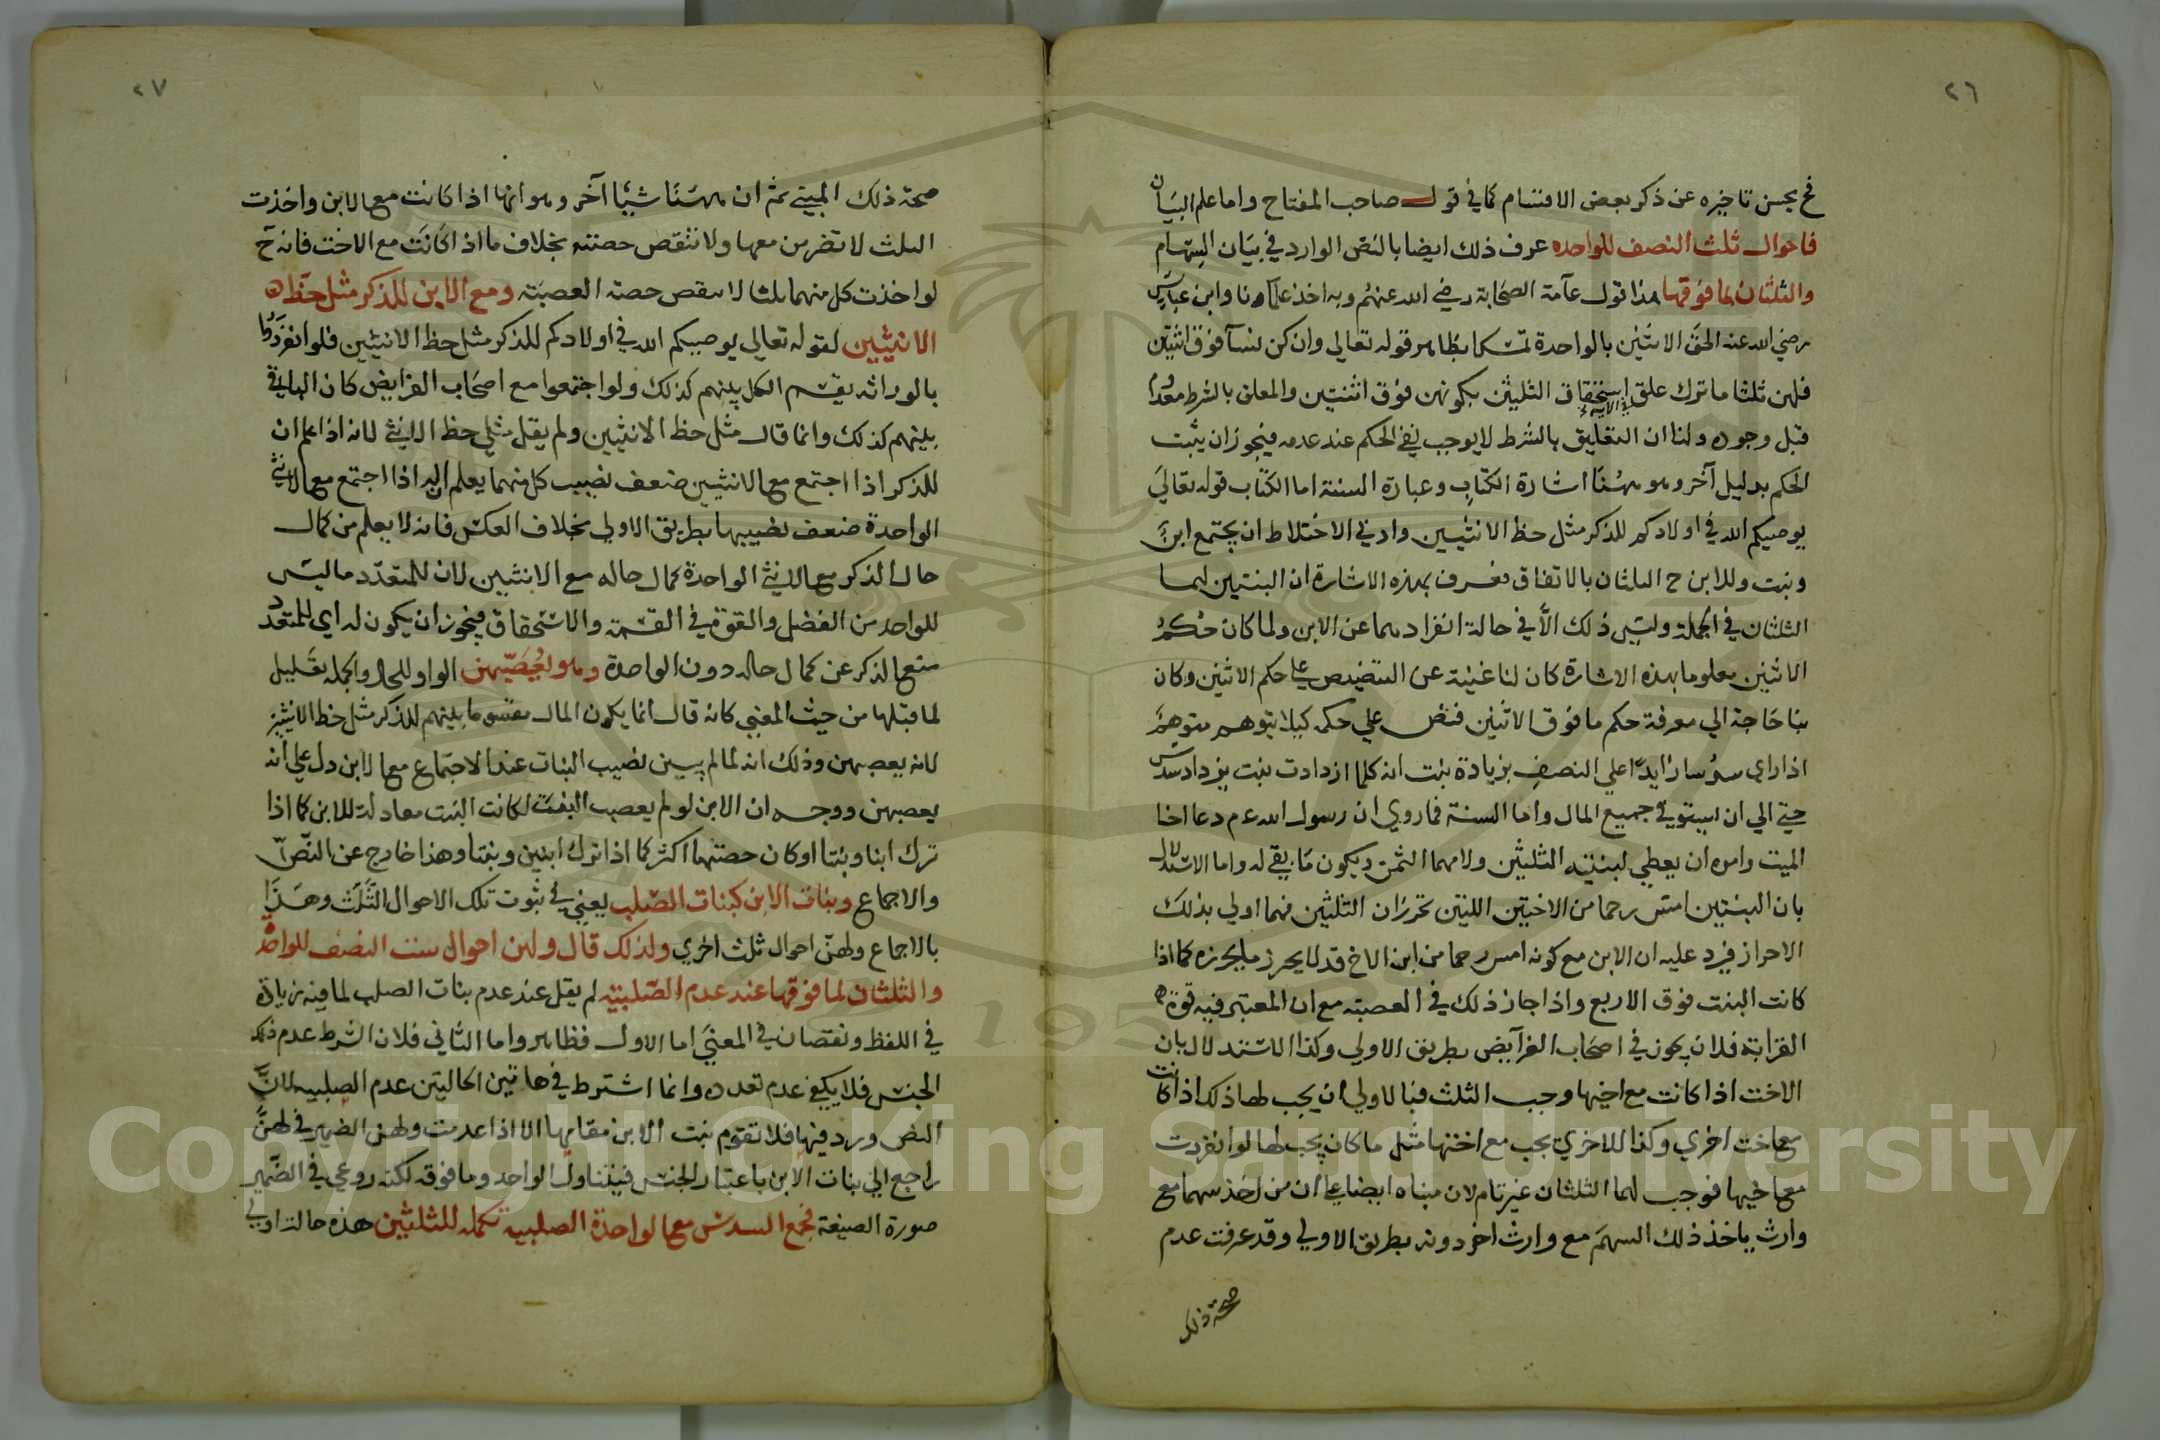 ٢٦
فح يحسن تاخيره عن ذكر بعض الاقسام كما في قول صاحب المفتاح واما علم البيان
فاحوال ثلث النصف للواحده عرف ذلك ايضا بالنص الوارد في بيان السهام
والثلثان لما فوقها هذا قول عامة الصحابة رضي الله عنهم وبه اخذ علماونا وابن عباس
رضي الله عنه الحق الاثنين بالواحدة تمسكا بظاهر قوله تعالي وان كن نسآ فوق اثنتين
فلهن ثلثا ما ترك علق استحقاق الثلثين بكونهن فوق اثنتين والمعلق بالشرط معدوم
قبل وجوده ولنا ان التعليق بالشرط لا يوجب نفي الحكم عند عدمه فيجوز ان يثبت
الحكم بدليل آخر وهو ههنا اشارة الكتاب وعبارة السنة اما الكتاب قوله تعالي
يوصيكم الله في اولادكم للذكر مثل حظ الانثيين وادني الاختلاط ان يجتمع ابن
وبنت وللابن ح الثلثان بالاتفاق فعرف بهذه الاشارة ان البنتين لهما
الثلثان في الجملة وليس ذلك الا في حالة انفرادهما عن الابن ولما كان حكم
الاثنين معلوما بهذه الاشارة كان لنا غنية عن التنصيص علي حكم الاثنين وكان
بنا حاجة الي معرفة حكم ما فوق الاثنين فنص علي حكمه كيلا يتوهم متوهم
اذا راي سدسا زايدا علي النصف بزيادة بنت انه كلما ازدادت بنت يزداد سدس
حتي الي ان يستوي جميع المال واما السنة فما روي ان رسول الله عم دعا اخا
الميت وامره ان يعطي لبنتيه الثلثين ولامهما الثمن ويكون ما بقي له واما الاستدلال
بان البنتين امس رحما من الاختين اللتين تحرزان الثلثين فهما اولي بذلك
الاحراز فيرد عليه ان الابن مع كونه امس رحما من ابن الاخ قد لا يحرز ما يحرزه كما اذا
كانت البنت فوق الاربع واذا جاز ذلك في العصبة مع ان المعتبر فيه قوة
القرابة فلان يجوز في اصحاب الفرآيض بطريق الاولي وكذا الاستدلال بان
الاخت اذا كانت مع اخيها وجب الثلث فبالاولي ان يجب لها ذلك اذا كانت
مع اخت اخري وكذا للاخري يجب مع اختها مثل ما كان يجب لها لو انفردت
مع اخيها فوجب لهما الثلثان غير تام لان مبناه ايضا علي ان من اخذ سهما مع
وارث ياخذ ذلك السهم مع وارث اخر دونه بطريق الاولي وقد عرفت عدم
صحة ذلك
٢٧
صحة ذلك المبني ثم ان ههنا شيئا آخر وهو انها اذا كانت مع الابن واخذت
الثلث لا تضر من معها ولا تنقص حصته بخلاف ما اذا كانت مع الاخت فانه ح
لو اخذت كل منهما ثلثا لا ينقص حصة العصبة ومع الابن للذكر مثل حظ
الانثيين لقوله تعالي يوصيكم الله في اولادكم للذكر مثل حظ الانثيين فلو انفردوا
بالوراثه يقسم الكل بينهم كذلك ولو اجتمعوا مع اصحاب الفرايض كان الباقي
بينهم كذلك وانما قال مثل حظ الانثيين ولم يقل مثلي حظ الانثي لانه اذا علم ان
للذكر اذا اجتمع مع الانثيين ضعف نصيب كل منهما يعلم ان له اذا اجتمع مع الانثي
الواحدة ضعف نصيبها بطريق الاولي بخلاف العكس فانه لا يعلم من كمال
حال الذكر مع الانثي الواحدة كمال حاله مع الانثيين لان للمتعدد ما ليس
للواحد من الفضل والقوة في القسمة والاستحقاق فيجوز ان يكون له اي للمتعدد
منع الذكر عن كمال حاله دون الواحدة وهو يعصبهن الواو للحال والجملة تعليل
لما قبلها من حيث المعني كانه قال انما يكون المال مقسوما بينهم للذكر مثل حظ الانثيين
لانه يعصبهن وذلك انه لما لم يبين نصيب البنات عند الاجتماع مع الابن دل علي انه
يعصبهن ووجه ان الابن لو لم يعصب البنت لكانت البنت معادلة للابن كما اذا
ترك ابنا وبنتا او كان حصتها اكثر كما اذا ترك ابنين وبنتا وهذا خارج عن النص
والاجماع وبنات الابن كبنات الصلب يعني في ثبوت تلك الاحوال الثلث وهذا
بالاجماع ولهن احوال ثلث اخري ولذلك قال ولهن احوال ست النصف للواحدة
والثلثان لما فوقها عند عدم الصلبية لم يقل عند عدم بنات الصلب لما فيه زيادة
في اللفظ ونقصان في المعني اما الاول فظاهر واما الثاني فلان الشرط عدم ذلك
الجنس فلا يكفي عدم تعدده وانما اشترط في هاتين الحالتين عدم الصلبيه لان
النص ورد فيها فلا تقوم بنت الابن مقامها الا اذا عدمت ولهن الضمير في لهن
راجع الي بنات الابن باعتبار الجنس فيتناول الواحد وما فوقه لكنه روعي في الضمير
صورة الصيغة السدس مع الواحدة الصلبية تكملة للثلثين هذه حالة اولي
Copyright © King Saud University
195